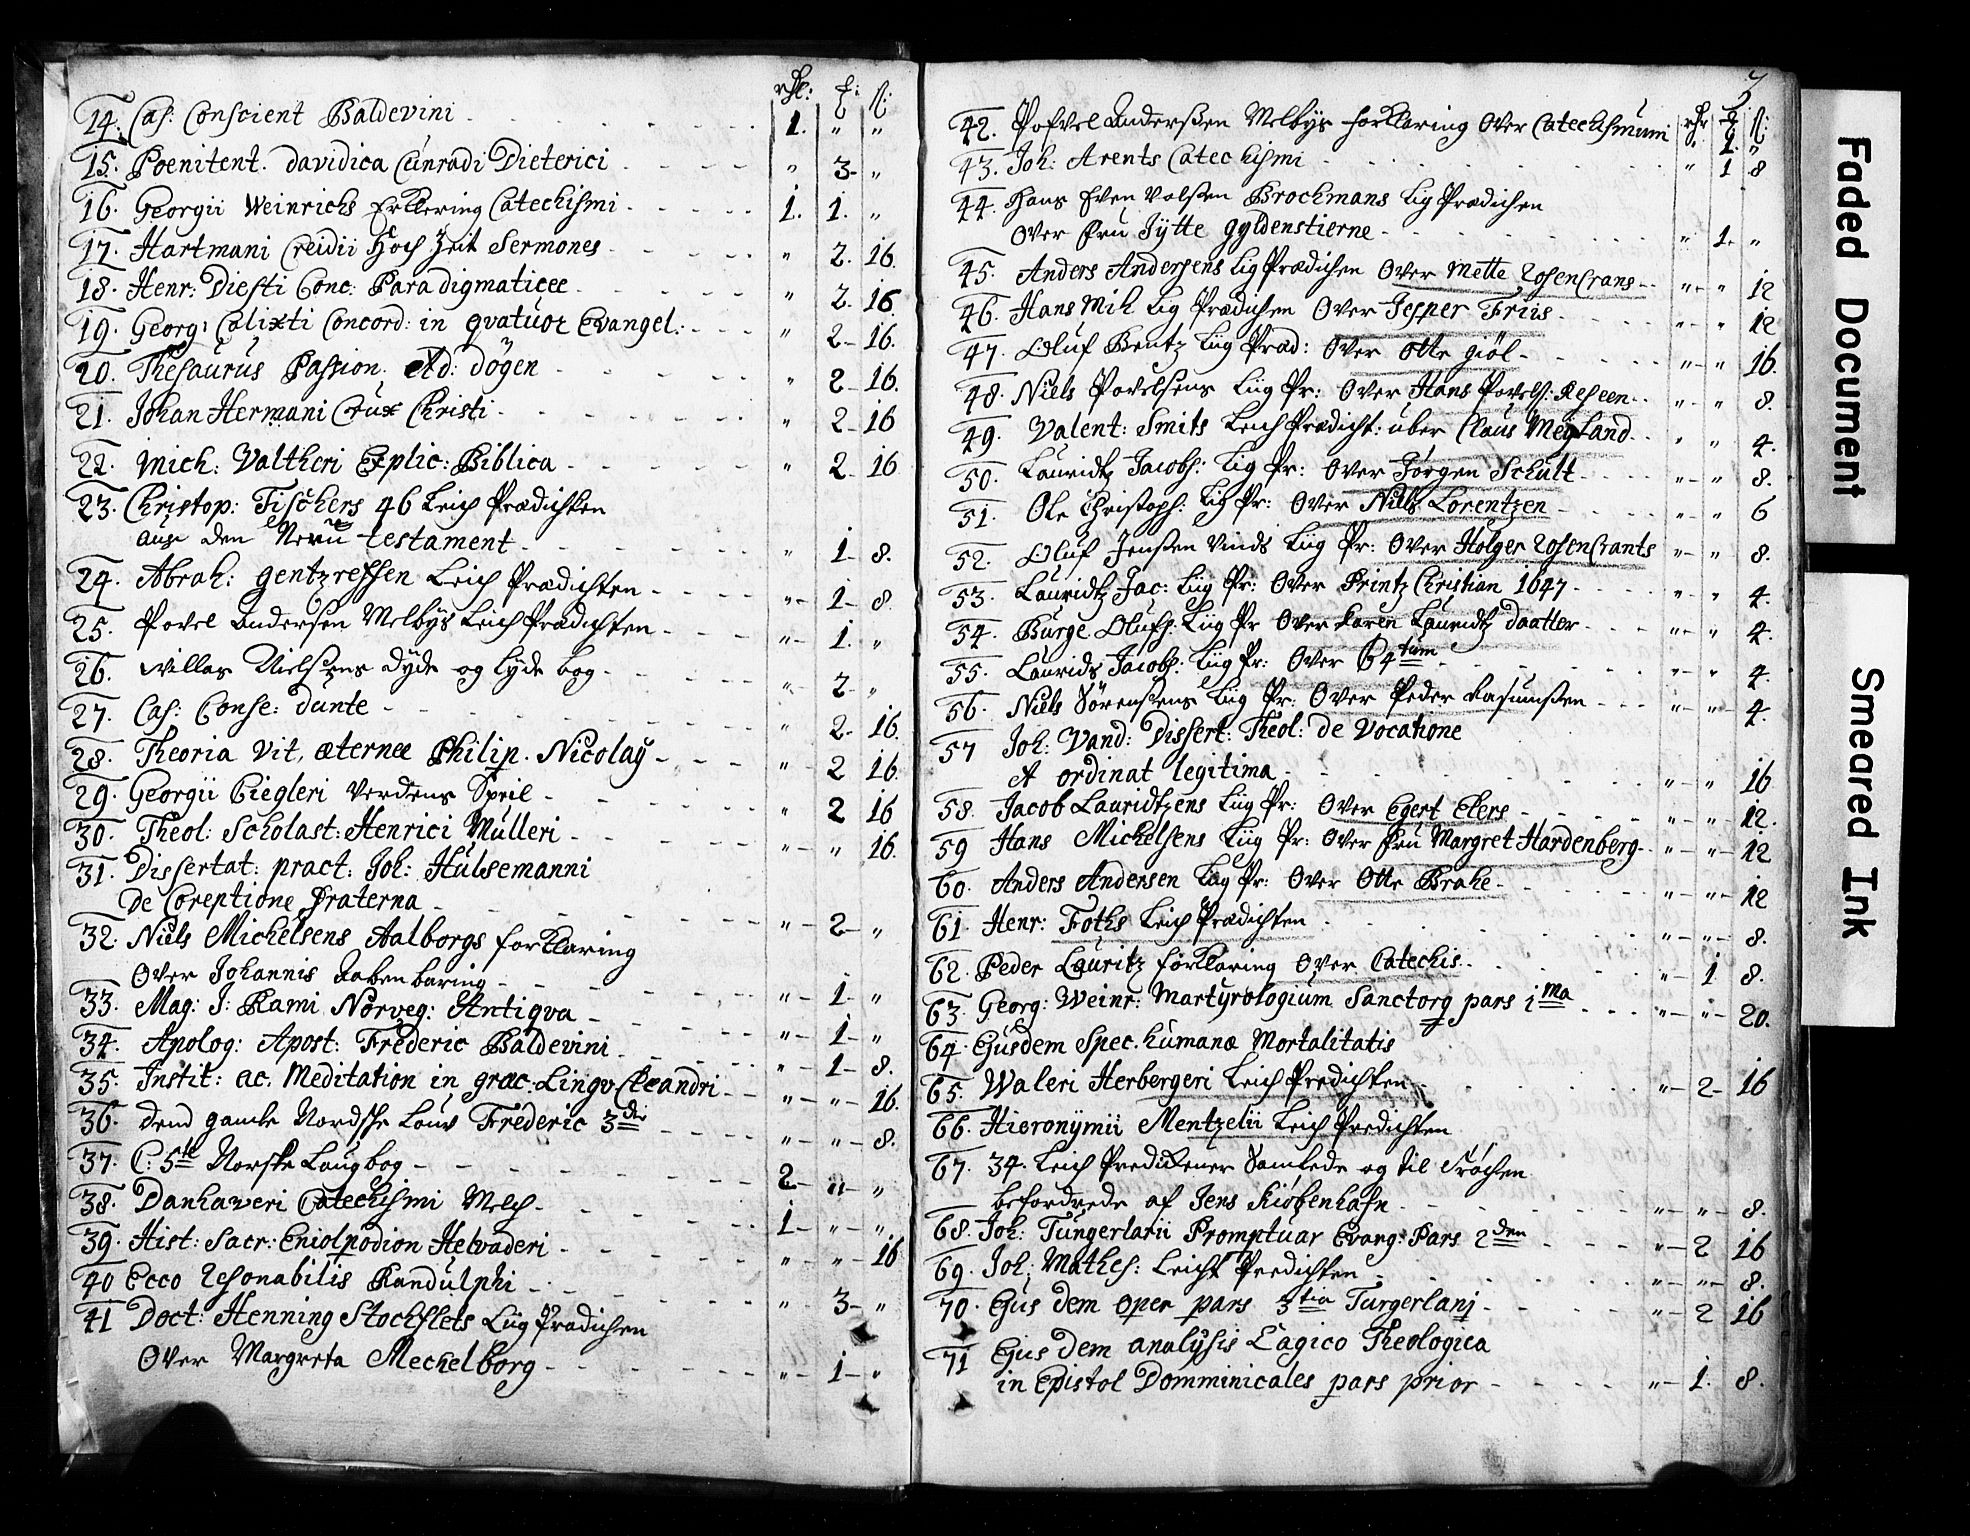 rdl: ƶ: ß:
14. Cas: Conscient Baldevini - 1. " "
15. Poenitent. davidica Cunradi Dieterici - " 3- "
16. Georgii Weinrichs Erklering Catechismi - 1. 1. "
17. Hartmani Creidii Hoch Zeit Sermones - " 2. 16.
18. Henr: Diesti Conc: Paradigmaticee - " 2. 16
19. Georg: Calixti Concord: in qvatuor Evangel: - " 2- 16.
20. Thesaurus Passion. Ad: dögen - " 2- 16.
21. Johan Hermani Crux Christi - " 2- 16
22. Mich: Valtheri Explic: Biblica - " 2- 16
23. Christop: Fischers 46 Leich Prædichten
aus den Neuu testament - " 1- 8.
24. Abrah: gentzreffen Leich Prædichten - "- 1- 8.
25. Povel Andersen Melbys Leich Prædichten - "- 1. "
26. Willas Nielsens dyde og lyde bog - "- 2- "
27. Cas: Conse: dunte - " 2- 16.
28. Theoria vit, æternæ Philip. Nicolay - "- 2 16.
29. Georgii Ciegleri Verdens Speil - " 2 16
30. Theol: Scholast: Henrici Mulleri - "- " 16.
31. Dissertat: pract: Joh: Hulsemanni
de Coreptione fraterna - "- 2- "
32. Niels Michelsens Aalborgs forklaring
over Johannis Aabenbaring - "- 1- "
33. Mag: J: Rami Norveg: Antiqva - "- 1- "
34. Apolog: Apost: Frederic Baldevini - "- 1- 8.
35. Instit: ac. Meditation in græc: Lingv Cleandri - "- "- 16.
36. dend gamle Nordske Louv Frederic 3die - "- "- 8.
37. C: 5te Norske Laugbog - 2- "- "
38. Danhaweri Catechismi Melch - 1- "- "
39. Hist: Sacr: Eniolpodion Helvaderi - "- "- 16
40 Ecco Resonabilis Randulphi - "- 3- "
41 Doct: Henning Stochflets Liig Prædichen
Over Margreta Mechelborg - "- 1- "
3
42. Pofvel Anderssen Melbys forklaring Over Catechismum 1. "
43. Joh: Arents Catechismi - " 1 8
44. Hans Even Volssen Brochmans Lig Prædichen
over fru Jytte gyldenstierne - " 1- "
45. Anders Andersens Lig Prædichen Over Mette Rosencrans - "- " 12
46. Hans Mih Lig Prædichen Over Jesper Friis - "- " 12
47. Oluf Bentz Liig Præd: Over Otte giöl - "- " 16.
48. Niels Povelsens Liig Pr: Over Hans Povelss: Reseen - "- " 8.
49. Valent: Smits Leich Prædicht: über Claus Meyland - " " 4.
50. Lauridtz Jacobs: Lig Pr: Over Jørgen Schult - "- " 8.
51. Ole Christoph: Lig Pr: Over Niels Lorentzen - "- " 6
52. Oluf Jenssen Vinds Liig Pr: Over Holger Rosencrants "- " 8.
53. Lauridtz Jac: Liig Pr: Over Printz Christian 1647 - "- " 4.
54. Burge Olufs: Liig Pr Over Karen Lauridtz daatter - "- " 4.
55. Laurids Jacobs: Liig Pr: Over C4tum - "- " 4.
56. Niels Sörenssens Liig Pr: Over Peder Rasmussen - "- "- 4.
57 Joh: Vand: Dissert: Theol: de Vocatione
et ordinat legitima - "- "- 16
58. Jacob Lauridtzens Liig Pr: Over Egert Elers - "- "- 12.
59 Hans Michelsens Liig Pr: Over fru Margret Hardenberg - "- "- 12
60. Anders Andersen Liig Pr: Over Otte Brahe - "- "- 12
61. Henr: Foths Leich Prædichten - "- "- 8.
62. Peder Lauritz forklaring Over Catechis - "- 1 8.
63. Georg: Weinr: Martyrologium Sanctorg pars 1ma - "- "- 20.
64 Ejusdem Spec. humanæ Mortalitatis
65. Waleri Herbergeri Leich Predichten - "- 2- 16
66. Hieronymii Mentzelii Leich Predichten
67. 34. Leich Predickener Samlede og til Tröchen
befordrede af Jens Kiøbenhafn - "- "- 8.
68. Joh: Tungerlarii Promptuar Evang: Pars 2den - "- 2 16
69. Joh: Mathes: Leichr Predichten - "- "- 8.
70. Ejus dem oper pars 3tia Turgerlanj - "- 2 16
71 Ejus dem analysis Lagico Theologica
in Epistol Domminicales pars prior - "- 1. 8.
Faded Document
Smeared Ink